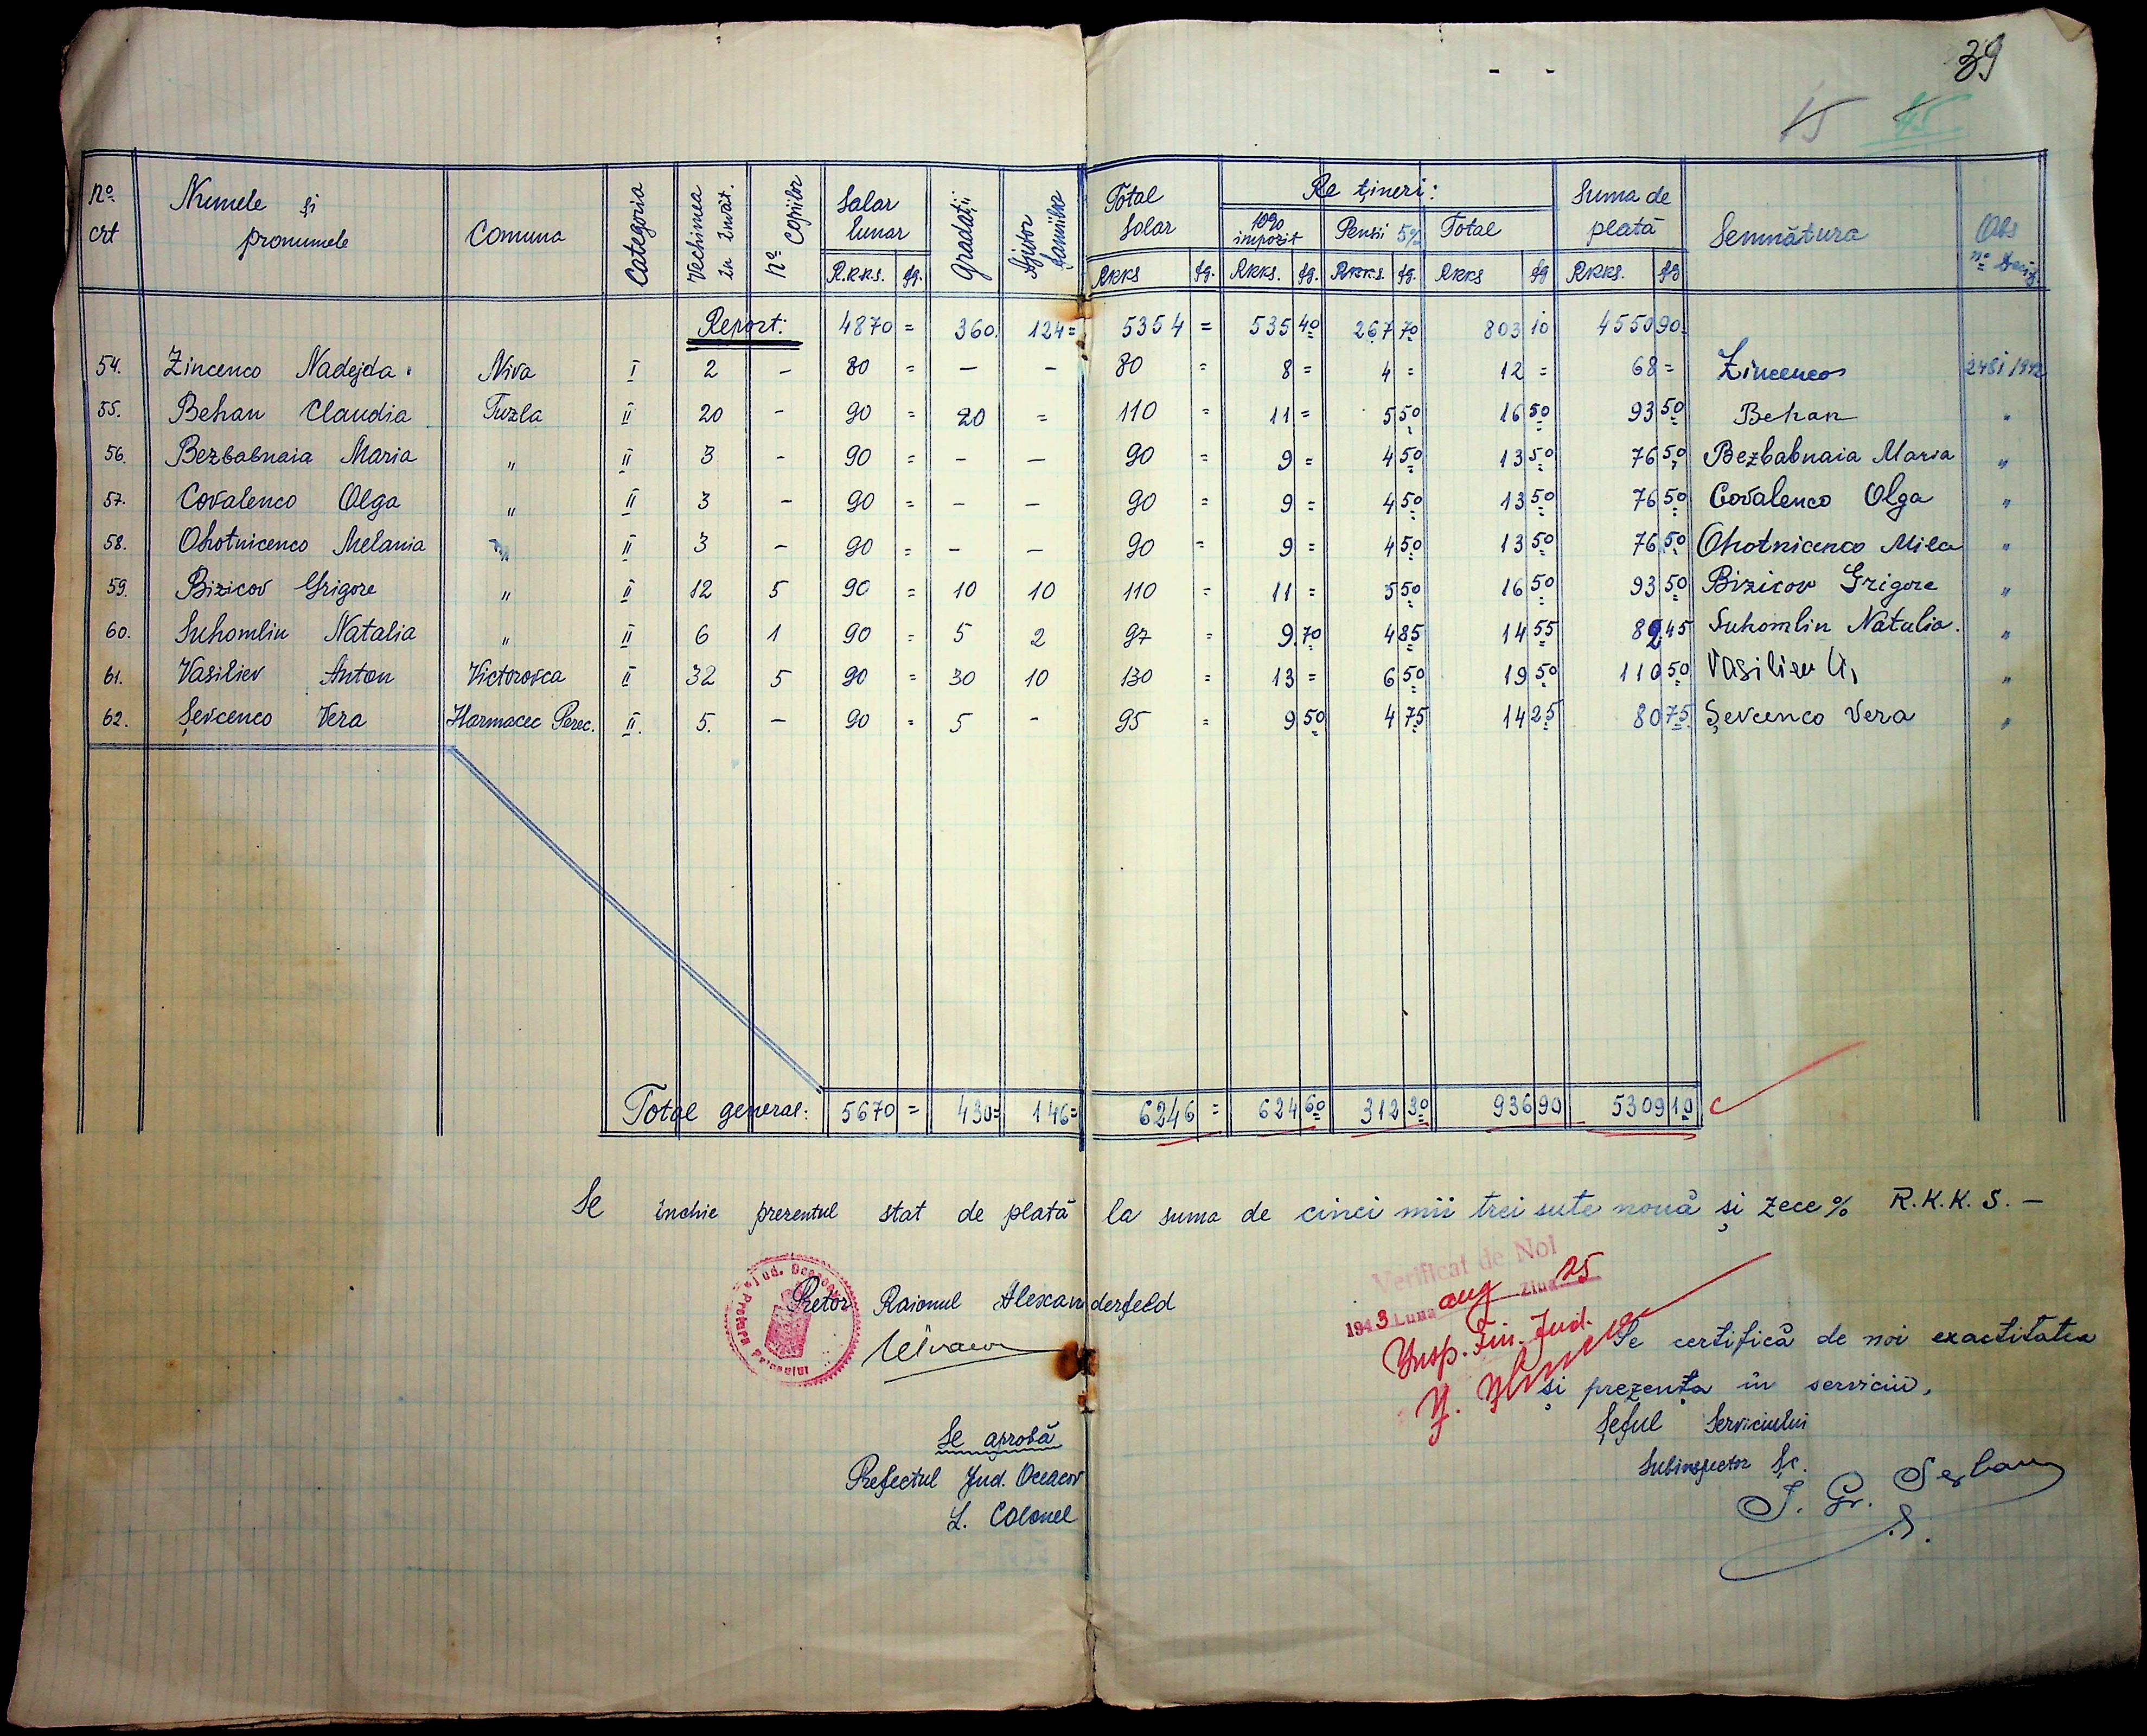 39
15 45
No crt Numele și pronumele Comuna Categoria Vechimea în învăț. No copiilor Salar lunar R.KKS. fg. Gradații Ajutor familiar Total Salar RKKS fg. Rețineri: 10% impozit RKKS. fg. Pensii 5% RKKS. fg. Total RKKS fg Suma de plată RKKS. fg Semnătura Obs
Report: 4870 = 360. 124= 5354 = 535 40 267 70 803 10 4550 90.
54. Zincenco Nadejda. Niva I 2 - 80 = — - 80 = 8 = 4 = 12 = 68 = Zincenco 2481/1942
55. Behan Claudia Tuzla II 20 - 90 = 20 = 110 = 11 = 5 50 16 50 93 50 Behan "
56. Bezbabnaia Maria " II 3 - 90 = - — 90 = 9 = 4 50 13 50 76 50 Bezbabnaia Maria "
57. Covalenco Olga " II 3 - 90 = - — 90 = 9 = 4 50 13 50 76 50 Covalenco Olga "
58. Ohotnicenco Melania " II 3 - 90 = - — 90 = 9 = 4 50 13 50 76 50 Ohotnicenco Mila "
59. Bizicov Grigore " II 12 5 90 = 10 10 110 = 11 = 5 50 16 50 93 50 Bizicov Grigore "
60. Suhomlin Natalia " II 6 1 90 = 5 2 97 = 9.70 4 85 14 55 82 45 Suhomlin Natalia. "
61. Vasiliev Anton Victorovca II 32 5 90 = 30 10 130 = 13 = 6 50 19 50 110 50 Vasiliev A, "
62. Șevcenco Vera Harmacec Perec. II. 5. - 90 = 5 - 95 = 9 50 4 75 14 25 80 75 Șevcenco Vera "
Total general: 5670 = 430= 146= 6246 = 624 60 312 30 936 90 5309 10
Se închie prezentul stat de plată la suma de cinci mii trei sute nouă și zece % R.K.K.S. —
Pretor Raionul Alexanderfeld
Verificat de Noi
1943 Luna aug Ziua 25
Insp. Fin. Jud.
Se certifică de noi exactitatea
și prezența în serviciu,
Șeful Serviciului
Subinspector Șc.
I. Gr. Șerban
Se aprobă
Prefectul Jud. Oceacov
L. Colonel